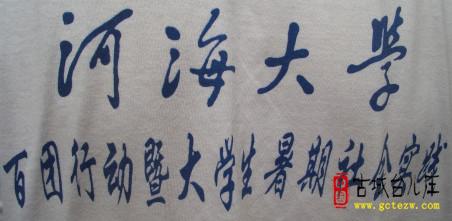 河海大学
百团行动暨大学生暑期社会实践
中国 古城台儿庄
www.gctezw.com